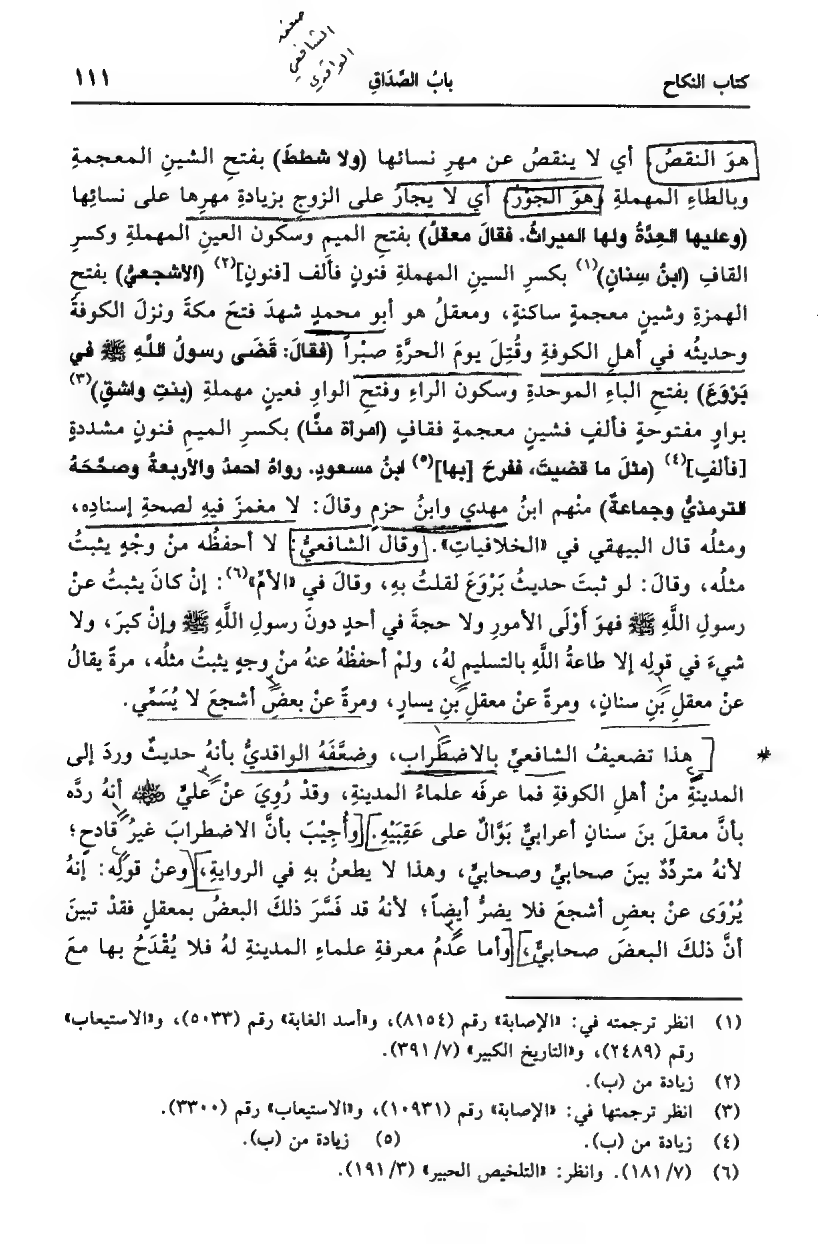 ضعفه
الشافعي
الواقدي
كتاب النكاح
بابُ الصَّدَاقِ
١١١
هوَ النقصُ، أي لا ينقصُ عن مهرِ نسائها (ولا شططَ) بفتحِ الشينِ المعجمةِ
وبالطاءِ المهملةِ وهوَ الجَوْرُ أي لا يجارُ على الزوجِ بزيادةِ مهرِها على نسائِها
(وعليها العِدَّةُ ولها الميراثُ. فقالَ معقلُ) بفتحِ الميمِ وسكونِ العينِ المهملةِ وكسرِ
القافِ (ابنُ سِنانٍ)(١) بكسرِ السينِ المهملةِ فنونٍ فألف [فنونٍ](٢) (الأشجعيُّ) بفتحِ
الهمزةِ وشينٍ معجمةٍ ساكنةٍ، ومعقلُ هو أبو محمدٍ شهدَ فتحَ مكةَ ونزلَ الكوفةَ
وحديثُه في أهلِ الكوفةِ وقُتِلَ يومَ الحرَّةِ صبْراً (فقالَ: قَضَى رسولُ اللَّهِ ﷺ في
بَرْوَعَ) بفتحِ الباءِ الموحدةِ وسكون الراءِ وفتحِ الواوِ فعينٍ مهملةٍ (بنتِ واشقٍ)(٣)
بواوٍ مفتوحةٍ فألفٍ فشينٍ معجمةٍ فقافٍ (امرأة منَّا) بكسرِ الميمِ فنونٍ مشددةٍ
[فألفٍ](٤) (مثلَ ما قضيتَ، ففرحَ [بها](٥) ابنُ مسعودٍ. رواهُ احمدُ والأربعةُ وصحَّحَهُ
الترمذيُّ وجماعةٌ) منْهم ابنُ مهدي وابنُ حزمٍ وقالَ: لا مغمزَ فيهِ لصحةِ إسنادِه،
ومثلُه قال البيهقي في «الخلافياتِ». وقال الشافعيُّ: لا أحفظُه منْ وجْهٍ يثبتُ
مثلُه، وقالَ: لو ثبتَ حديثُ بَرْوَعَ لقلتُ بهِ، وقالَ في «الأمِّ»(٦): إنْ كانَ يثبتُ عنْ
رسولِ اللَّهِ ﷺ فهوَ أَوْلَى الأمورِ ولا حجةَ في أحدٍ دونَ رسولِ اللَّهِ ﷺ وإنْ كبرَ، ولا
شيءَ في قولِه إلا طاعةُ اللَّهِ بالتسليمِ لهُ، ولمْ أحفظْهُ عنهُ منْ وجهٍ يثبتُ مثلُه، مرةً يقالُ
عنْ معقلِ بْنِ سنانٍ، ومرةً عنْ معقلِ بْنِ يسارٍ، ومرةً عنْ بعضِ أشجعَ لا يُسَمِّي.
هذا تضعيفُ الشافعيِّ بالاضطرابِ، وضعَّفَهُ الواقديُّ بأنهُ حديثٌ وردَ إلى
المدينةِ منْ أهلِ الكوفةِ فما عرفَه علماءُ المدينةِ، وقدْ رُوِيَ عنْ عليٍّ رضي الله عنه أنهُ ردَّه
بأنَّ معقلَ بنَ سنانٍ أعرابيٌّ بَوَّالٌ على عَقِبَيْهِ. وأُجِيْبَ بأنَّ الاضطرابَ غيرُ قادحٍ؛
لأنهُ متردِّدٌ بينَ صحابيٍّ وصحابيٍّ، وهذا لا يطعنُ بهِ في الروايةِ، وعنْ قولِه: إنهُ
يُرْوَى عنْ بعضِ أشجعَ فلا يضرُّ أيضاً؛ لأنهُ قد فَسَّرَ ذلكَ البعضُ بمعقلٍ فقدْ تبينَ
أنَّ ذلكَ البعضَ صحابيٌّ، وأما عدمُ معرفةِ علماءِ المدينةِ لهُ فلا يُقْدَحُ بها معَ
(١) انظر ترجمته في: «الإصابة» رقم (٨١٥٤)، و«أسد الغابة» رقم (٥٠٣٣)، و«الاستيعاب»
رقم (٢٤٨٩)، و«التاريخ الكبير» (٧/ ٣٩١).
(٢) زيادة من (ب).
(٣) انظر ترجمتها في: «الإصابة» رقم (١٠٩٣١)، و«الاستيعاب» رقم (٣٣٠٠).
(٤) زيادة من (ب). (٥) زيادة من (ب).
(٦) (٧/ ١٨١). وانظر: «التلخيص الحبير» (٣/ ١٩١).